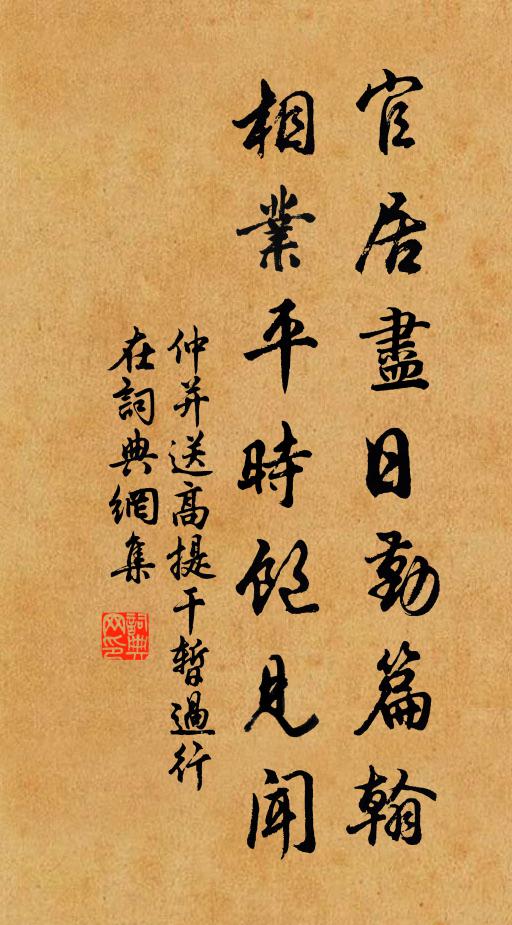 官居盡日勤篇翰
相業平時飽見聞
仲并送高提干暫過行
在詞典網集
詞典
网印